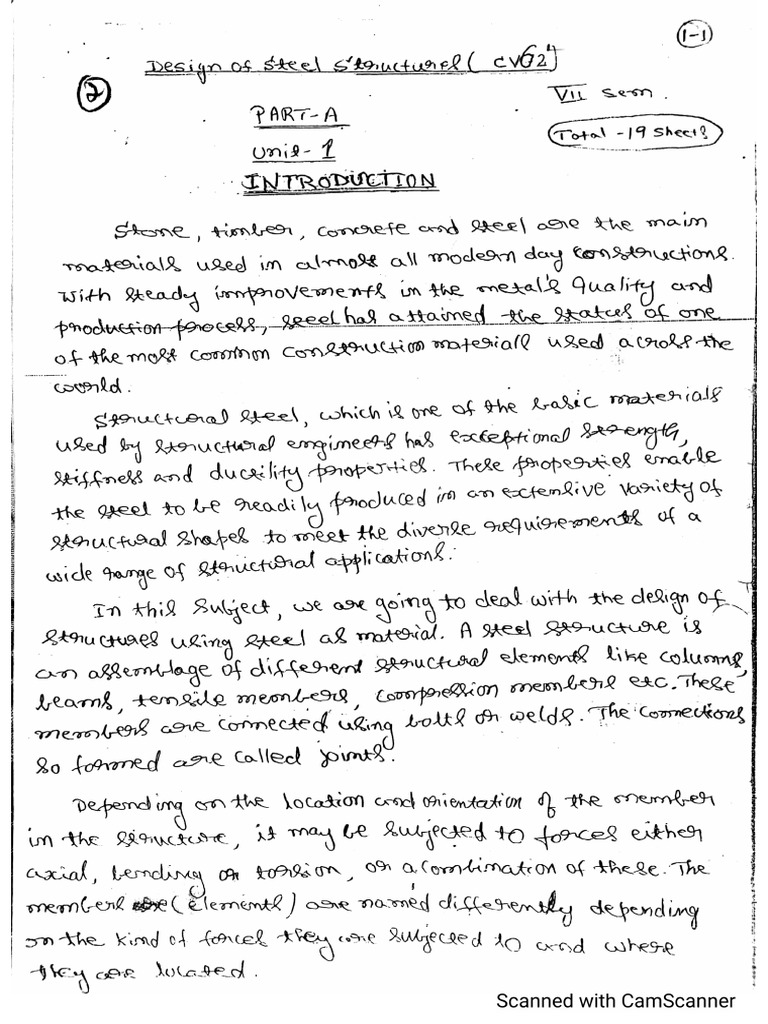 1-1
Design of Steel Structures ( CV62)
2
VII Sem.
PART-A
Total -19 Sheets
Unit-1
INTRODUCTION
Stone, timber, concrete and steel are the main
materials used in almost all modern day constructions.
With steady improvements in the metal's quality and
production process, steel has attained the status of one
of the most common construction materials used across the
world.
Structural steel, which is one of the basic materials
used by structural engineers has exceptional strength,
stiffness and ductility properties. These properties enable
the steel to be readily produced in an extensive variety of
structural shapes to meet the diverse requirements of a
wide range of structural applications.
In this subject, we are going to deal with the design of
structures using steel as material. A steel structure is
an assemblage of different structural elements like columns,
beams, tensile members, compression members etc. These
members are connected using bolts or welds. The connections
so formed are called joints.
Depending on the location and orientation of the member
in the structure, it may be subjected to forces either
axial, bending or torsion, or a combination of these. The
members (elements) are named differently depending
on the kind of forces they are subjected to and where
they are located.
Scanned with CamScanner